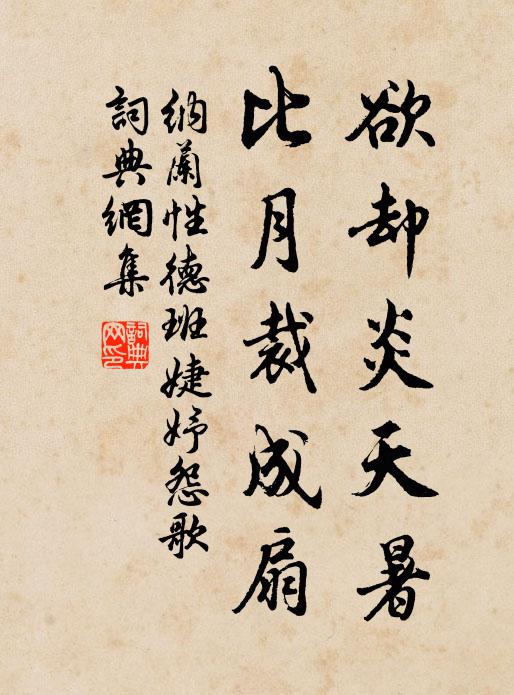 欲却炎天暑
比月裁成扇
納蘭性德班婕妤怨歌
詞典網集
詞典
网印